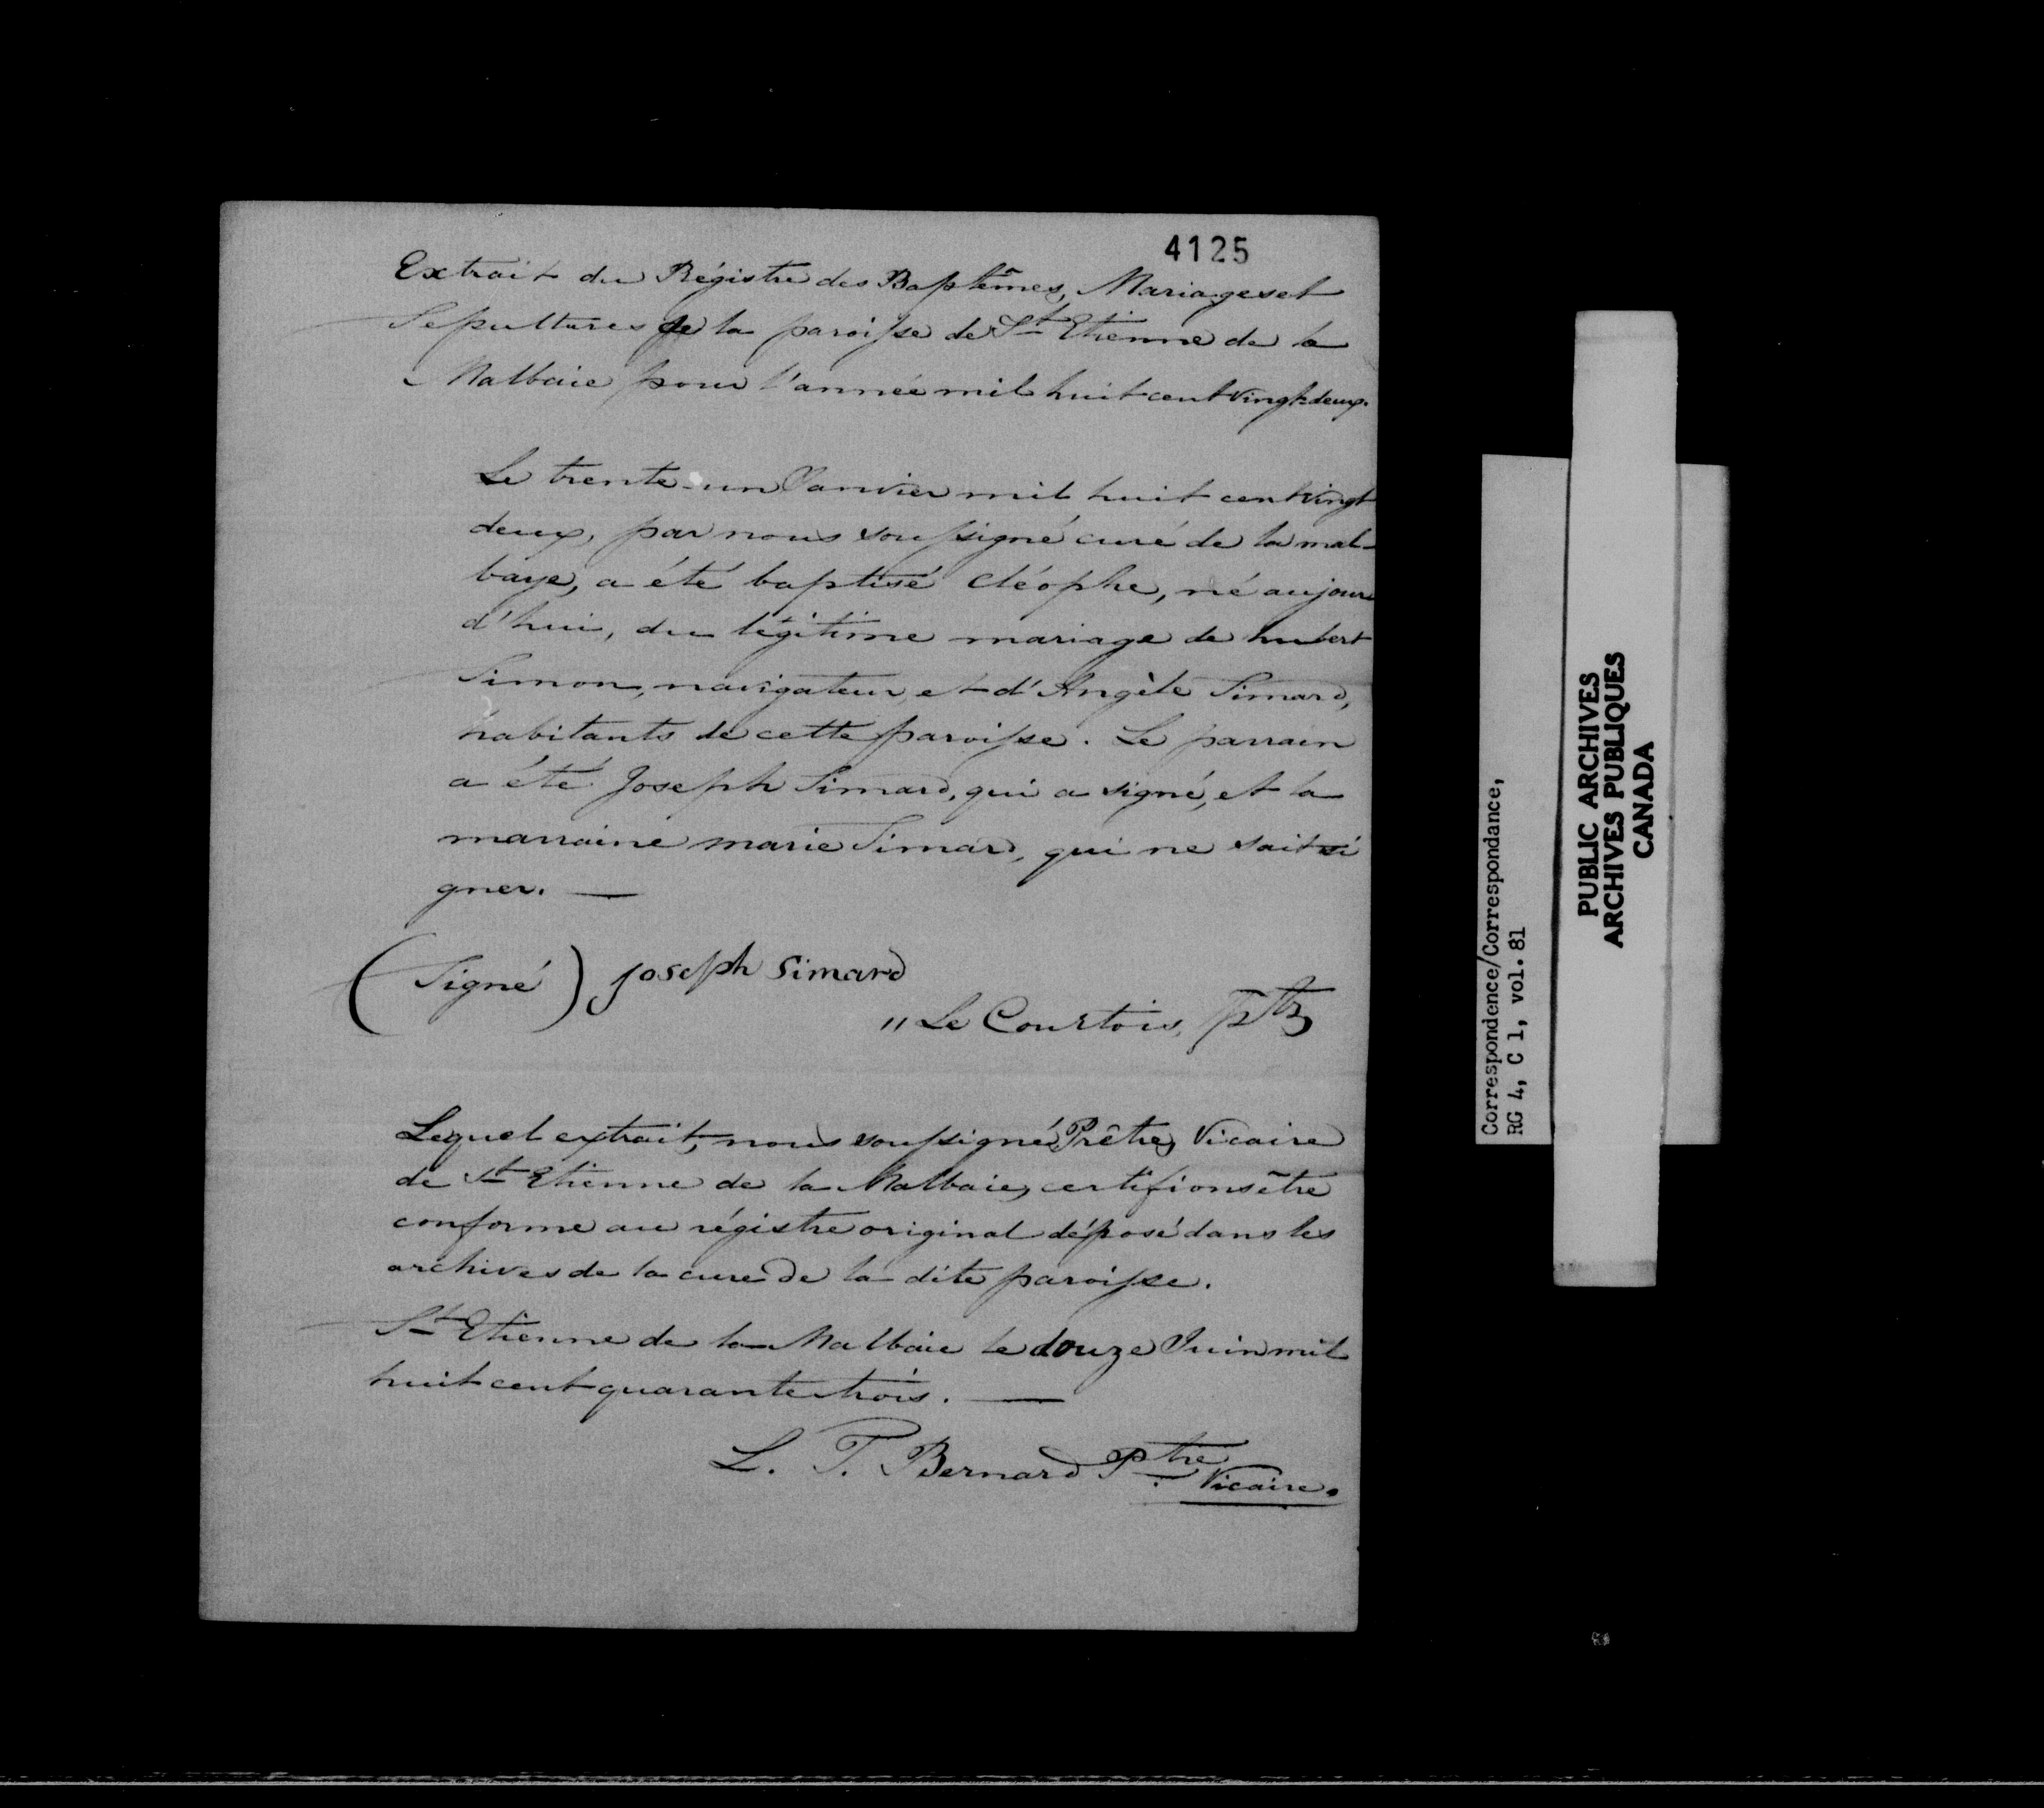 4125
Extrait du Régistre des Baptêmes, Mariages et
Sépultures de la paroisse de St Etienne de la
Malbaie pour l'année mil huit cent vingt-deux.
Le trente-un Janvier mil huit cent vingt
deux, par nous soussigné curé de la mal-
baye, a été baptisé Cléophe, né aujour
d'hui, du légitime mariage de hubert
Simon, navigateur, et d'Angèle Simard,
habitants de cette paroisse. Le parrain
a été Joseph Simard, qui a signé, et la
marraine marie Simard, qui ne sait si
gner. —
(Signé) Joseph Simard
" Le Courtois, Ptre
Lequel extrait, nous soussigné, Prêtre, Vicaire
de St Etienne de la Malbaie, certifions être
conforme au régistre original déposé dans les
archives de la cure de la dite paroisse.
St Etienne de la Malbaie le douze Juin mil
huit cent quarante trois. —
L. T. Bernard Ptre
Vicaire.
Correspondence/Correspondance,
RG 4, C 1, vol. 81
PUBLIC ARCHIVES
ARCHIVES PUBLIQUES
CANADA